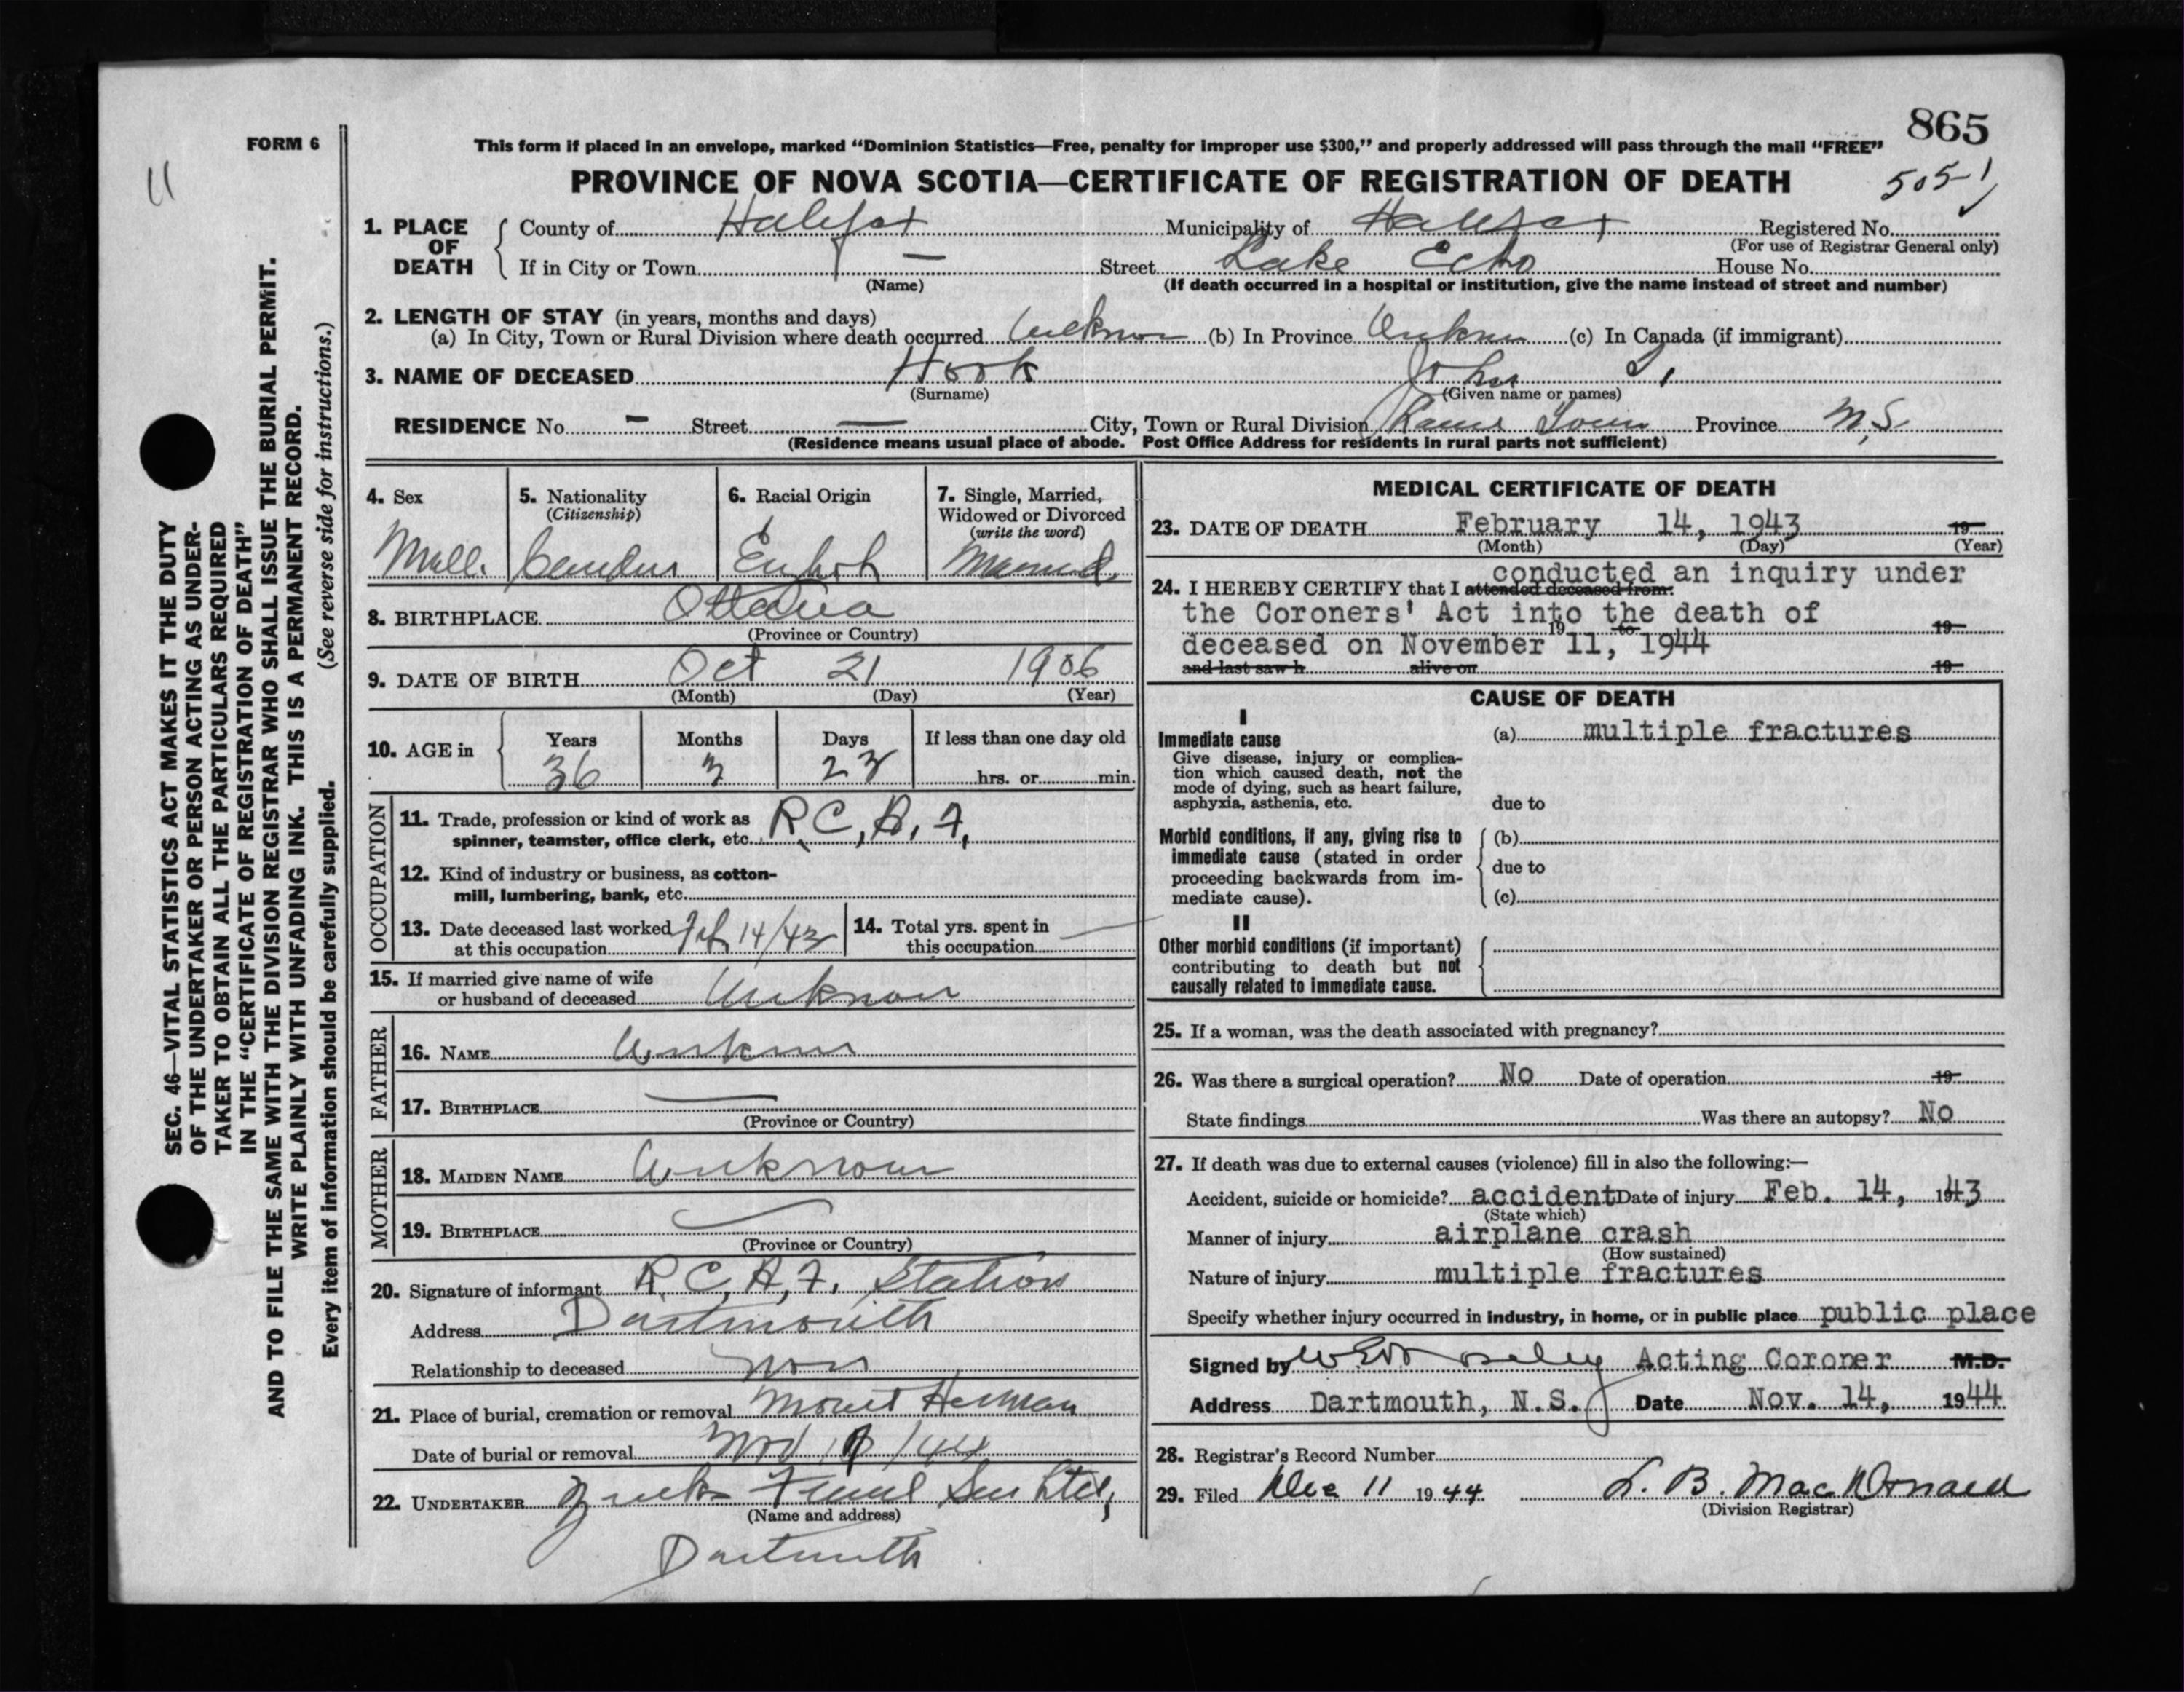 865
FORM 6
This form if placed in an envelope, marked “Dominion Statistics—Free, penalty for improper use $300,” and properly addressed will pass through the mail “FREE”
PROVINCE OF NOVA SCOTIA—CERTIFICATE OF REGISTRATION OF DEATH
505
11
SEC. 46—VITAL STATISTICS ACT MAKES IT THE DUTY
OF THE UNDERTAKER OR PERSON ACTING AS UNDER-
TAKER TO OBTAIN ALL THE PARTICULARS REQUIRED
IN THE “CERTIFICATE OF REGISTRATION OF DEATH”
AND TO FILE THE SAME WITH THE DIVISION REGISTRAR WHO SHALL ISSUE THE BURIAL PERMIT.
WRITE PLAINLY WITH UNFADING INK. THIS IS A PERMANENT RECORD.
Every item of information should be carefully supplied. (See reverse side for instructions.)
1. PLACE OF DEATH County of Halifax Municipality of Halifax Registered No.
(For use of Registrar General only)
If in City or Town — Street Lake Echo House No.
(Name) (If death occurred in a hospital or institution, give the name instead of street and number)
2. LENGTH OF STAY (in years, months and days)
(a) In City, Town or Rural Division where death occurred Unknown (b) In Province Unknown (c) In Canada (if immigrant)
3. NAME OF DECEASED Hook John
(Surname) (Given name or names)
RESIDENCE No. - Street — City, Town or Rural Division Province N.S.
(Residence means usual place of abode. Post Office Address for residents in rural parts not sufficient)
4. Sex 5. Nationality 6. Racial Origin 7. Single, Married,
(Citizenship) Widowed or Divorced
(write the word)
Male Canadian English Married
8. BIRTHPLACE Ottawa
(Province or Country)
9. DATE OF BIRTH Oct 21 1906
(Month) (Day) (Year)
10. AGE in Years Months Days If less than one day old
36 3 23 hrs. or min.
OCCUPATION
11. Trade, profession or kind of work as
spinner, teamster, office clerk, etc. R.C.A.F.
12. Kind of industry or business, as cotton-
mill, lumbering, bank, etc.
13. Date deceased last worked
at this occupation Feb 14/43
14. Total yrs. spent in
this occupation —
15. If married give name of wife
or husband of deceased Unknown
FATHER
16. NAME Unknown
17. BIRTHPLACE —
(Province or Country)
MOTHER
18. MAIDEN NAME Unknown
19. BIRTHPLACE —
(Province or Country)
20. Signature of informant R.C.A.F. Station
Address Dartmouth
Relationship to deceased
21. Place of burial, cremation or removal Mount Herman
Date of burial or removal Nov
22. UNDERTAKER Ltd,
(Name and address)
Dartmouth
MEDICAL CERTIFICATE OF DEATH
23. DATE OF DEATH February 14, 1943 19
(Month) (Day) (Year)
24. I HEREBY CERTIFY that I attended deceased from: conducted an inquiry under
the Coroners' Act into the death of
19 to 19
deceased on November 11, 1944
and last saw h alive on 19
CAUSE OF DEATH
I
Immediate cause (a) multiple fractures
Give disease, injury or complica-
tion which caused death, not the
mode of dying, such as heart failure,
asphyxia, asthenia, etc. due to
Morbid conditions, if any, giving rise to (b)
immediate cause (stated in order
proceeding backwards from im- due to
mediate cause). (c)
II
Other morbid conditions (if important)
contributing to death but not
causally related to immediate cause.
25. If a woman, was the death associated with pregnancy?
26. Was there a surgical operation? No Date of operation 19
State findings Was there an autopsy? No
27. If death was due to external causes (violence) fill in also the following:—
Accident, suicide or homicide? accident Date of injury Feb. 14, 1943
(State which)
Manner of injury airplane crash
(How sustained)
Nature of injury multiple fractures
Specify whether injury occurred in industry, in home, or in public place public place
Signed by Acting Coroner M.D.
Address Dartmouth, N.S. Date Nov. 14, 1944
28. Registrar's Record Number
29. Filed Dec 11 1944 L. B. MacDonald
(Division Registrar)